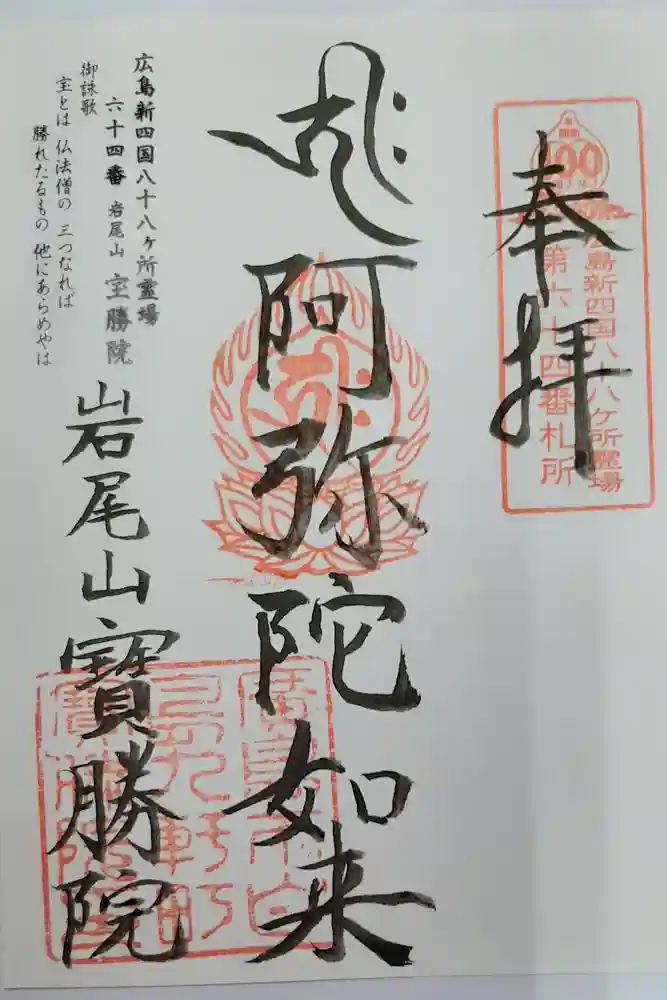 奉拝
100
広島新四国八十八ヶ所霊場
第六十四番札所
阿弥陀如来
広島新四国八十八ヶ所霊場
六十四番 岩尾山 宝勝院
御詠歌
宝とは 仏法僧の 三つなれば
勝れたるもの 他にあらめやは
岩尾山寶勝院